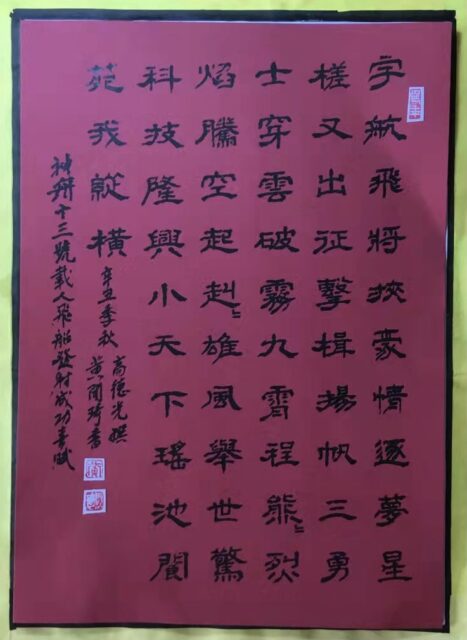 宇航飛將挾豪情逐夢星
槎又出征擊楫揚帆三勇
士穿雲破霧九霄程熊〻烈
焰騰空起赳〻雄風舉世驚
科技隆興小天下瑤池閬
苑我縱橫
辛丑季秋
高德光撰
黃琦書
神舟十三號載人飛船發射成功喜賦